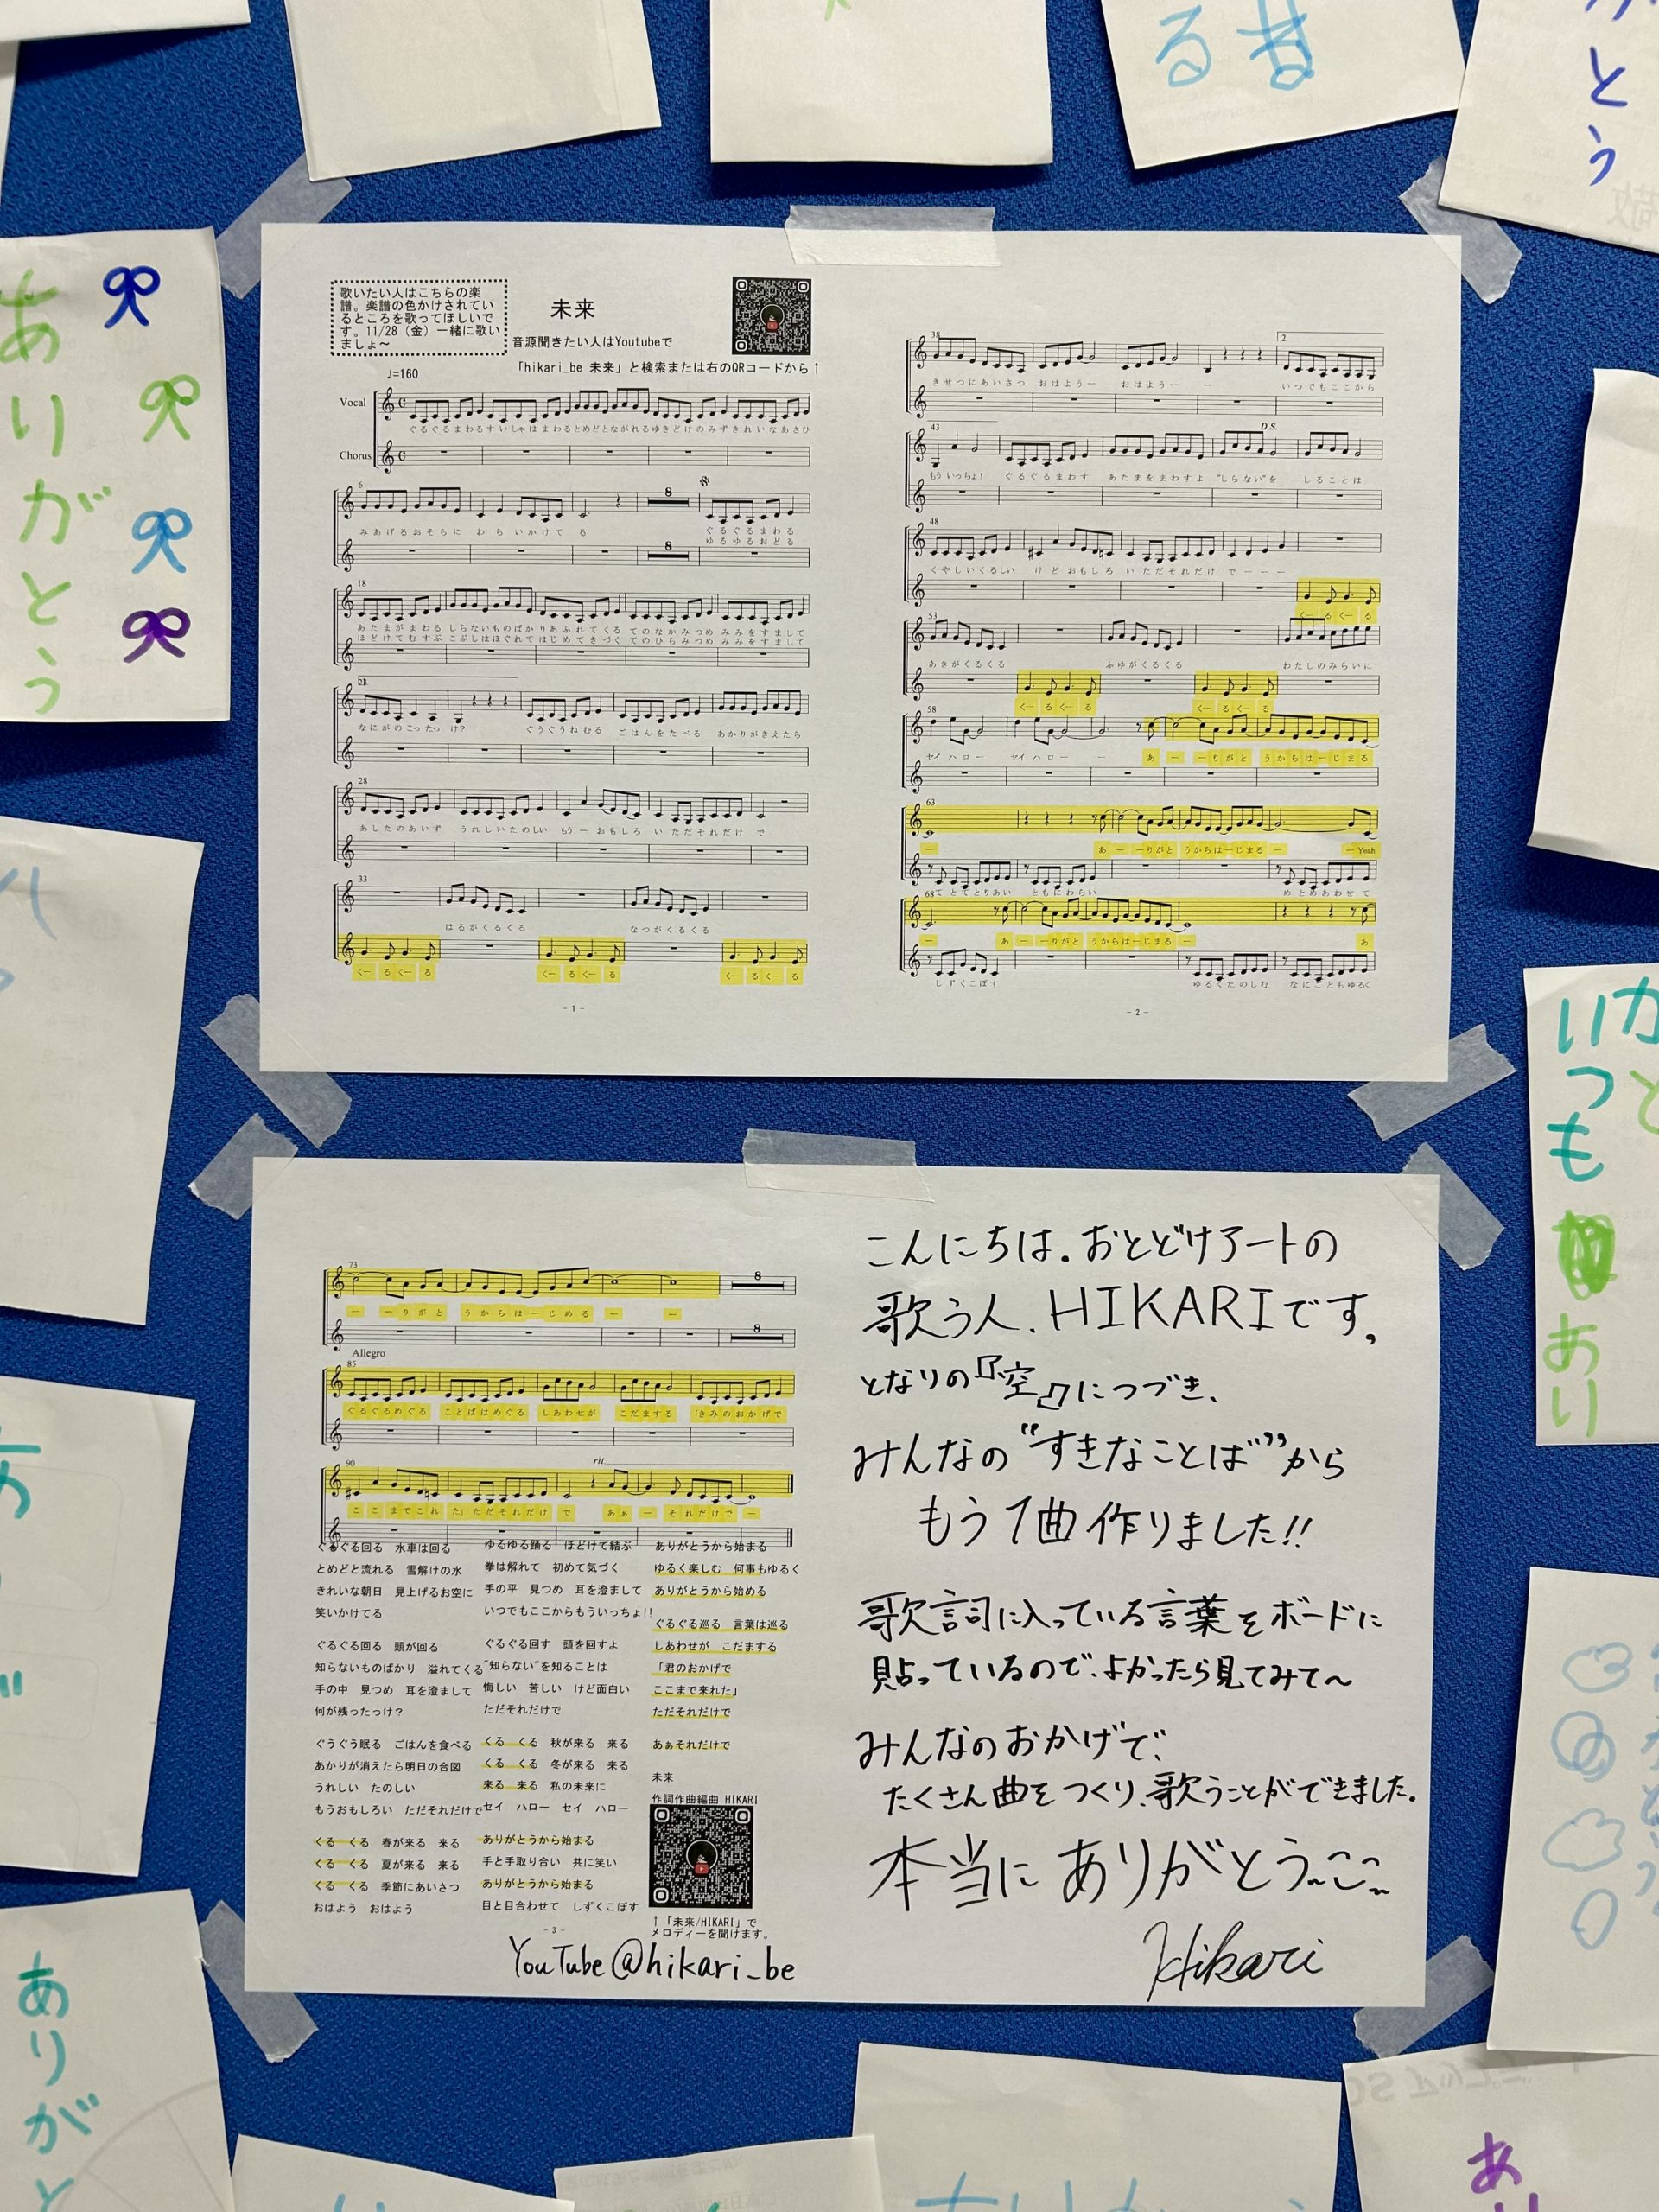 る
とう
ありがとう
歌いたい人はこちらの楽
譜。楽譜の色かけされてい
るところを歌ってほしいで
す。11/28（金）一緒に歌い
ましょ～
未来
音源聞きたい人はYoutubeで
「hikari_be 未来」と検索または右のQRコードから↑
♩=160
Vocal
ぐるぐるまわるすいしゃはまわるとめどとながれるゆきどけのみずきれいなあさひ
Chorus
6
8
みあげるおそらに わらいかけてる ぐるぐるまわる
ゆるゆるおどる
8
18
あたまがまわるしらないものばかりあふれてくるてのなかみつめみみをすまして
ほどけてむすぶこぶしはほぐれてはじめてきづくてのひらみつめみみをすまして
なにがのこったっけ? ぐうぐうねむる ごはんをたべる あかりがきえたら
28
あしたのあいず うれしいたのしい もうーおもしろいただそれだけで
33
はるがくるくる なつがくるくる
くーるくーる くーるくーる くーるくーる
- 1 -
38
2
きせつにあいさつ おはようー おはようーー いつでもここから
43
D.S.
もういっちょ! ぐるぐるまわす あたまをまわすよ "しらない"を しることは
48
くやしいくるしい けどおもしろいただそれだけでーーー
くーるくーる
53
あきがくるくる ふゆがくるくる わたしのみらいに
くーるくーる くーるくーる
58
セイハロー セイハローー あーーりがとうからはーじまる
63
ー あーーりがとうからはーじまるー ーYeah
てとてとりあい ともにわらい めとめあわせて
68
ー あーーりがとうからはーじまるー あ
しずくこぼす ゆるくたのしむ なにごともゆるく
- 2 -
73
8
ーーりがとうからはーじめるーー
8
Allegro
85
ぐるぐるめぐる ことばはめぐる しあわせが こだまする 「きみのおかげで
90
rit.
ここまでこれた」ただそれだけで あぁーそれだけでー
ぐるぐる回る 水車は回る
とめどと流れる 雪解けの水
きれいな朝日 見上げるお空に
笑いかけてる
ぐるぐる回る 頭が回る
知らないものばかり 溢れてくる
手の中 見つめ 耳を澄まして
何が残ったっけ？
ぐうぐう眠る ごはんを食べる
あかりが消えたら明日の合図
うれしい たのしい
もうおもしろい ただそれだけで
くる くる 春が来る 来る
くる くる 夏が来る 来る
くる くる 季節にあいさつ
おはよう おはよう
ゆるゆる踊る ほどけて結ぶ
拳は解れて 初めて気づく
手の平 見つめ 耳を澄まして
いつでもここからもういっちょ!!
ぐるぐる回す 頭を回すよ
"知らない"を知ることは
悔しい 苦しい けど面白い
ただそれだけで
くる くる 秋が来る 来る
くる くる 冬が来る 来る
来る 来る 私の未来に
セイ ハロー セイ ハロー
ありがとうから始まる
手と手取り合い 共に笑い
ありがとうから始まる
目と目合わせて しずくこぼす
ありがとうから始まる
ゆるく楽しむ 何事もゆるく
ありがとうから始める
ぐるぐる巡る 言葉は巡る
しあわせが こだまする
「君のおかげで
ここまで来れた」
ただそれだけで
あぁそれだけで
未来
作詞作曲編曲 HIKARI
↑「未来/HIKARI」で
メロディーを聞けます。
- 3 -
YouTube @hikari_be
こんにちは。おとどけアートの
歌う人、HIKARIです。
となりの『空』につづき、
みんなの"すきなことば"から
もう1曲作りました!!
歌詞に入っている言葉をボードに
貼っているので、よかったら見てみて～
みんなのおかげで、
たくさん曲をつくり、歌うことができました。
本当にありがとう
Hikari
いつも
あり
ありがと
あ